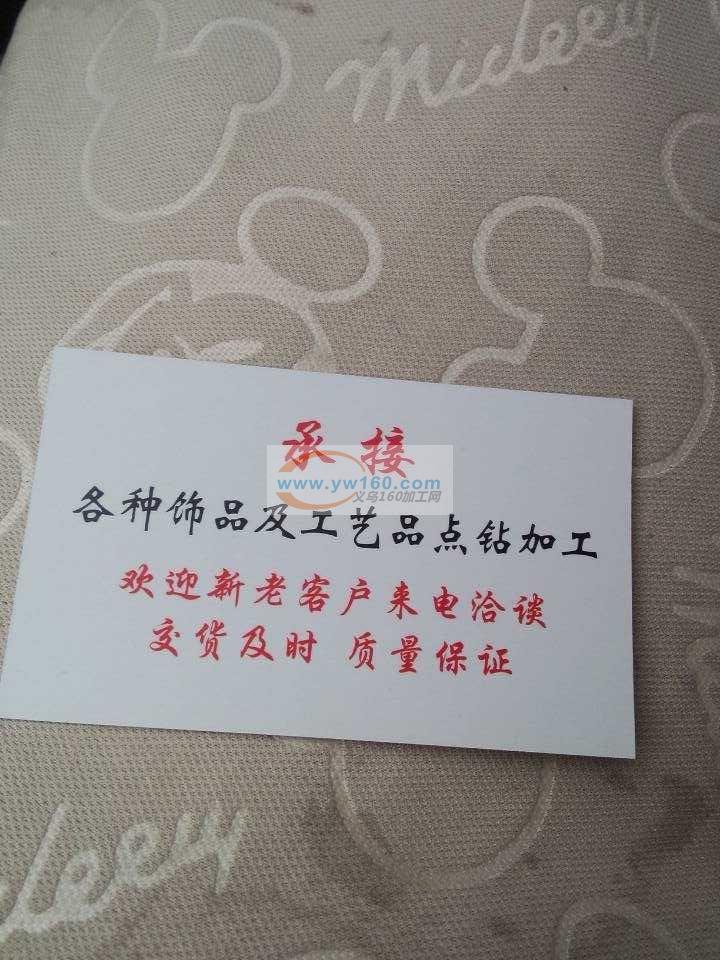 Mideey
承接
www.yw160.com
义乌160加工网
各种饰品及工艺品点钻加工
欢迎新老客户来电洽谈
交货及时 质量保证
ideey